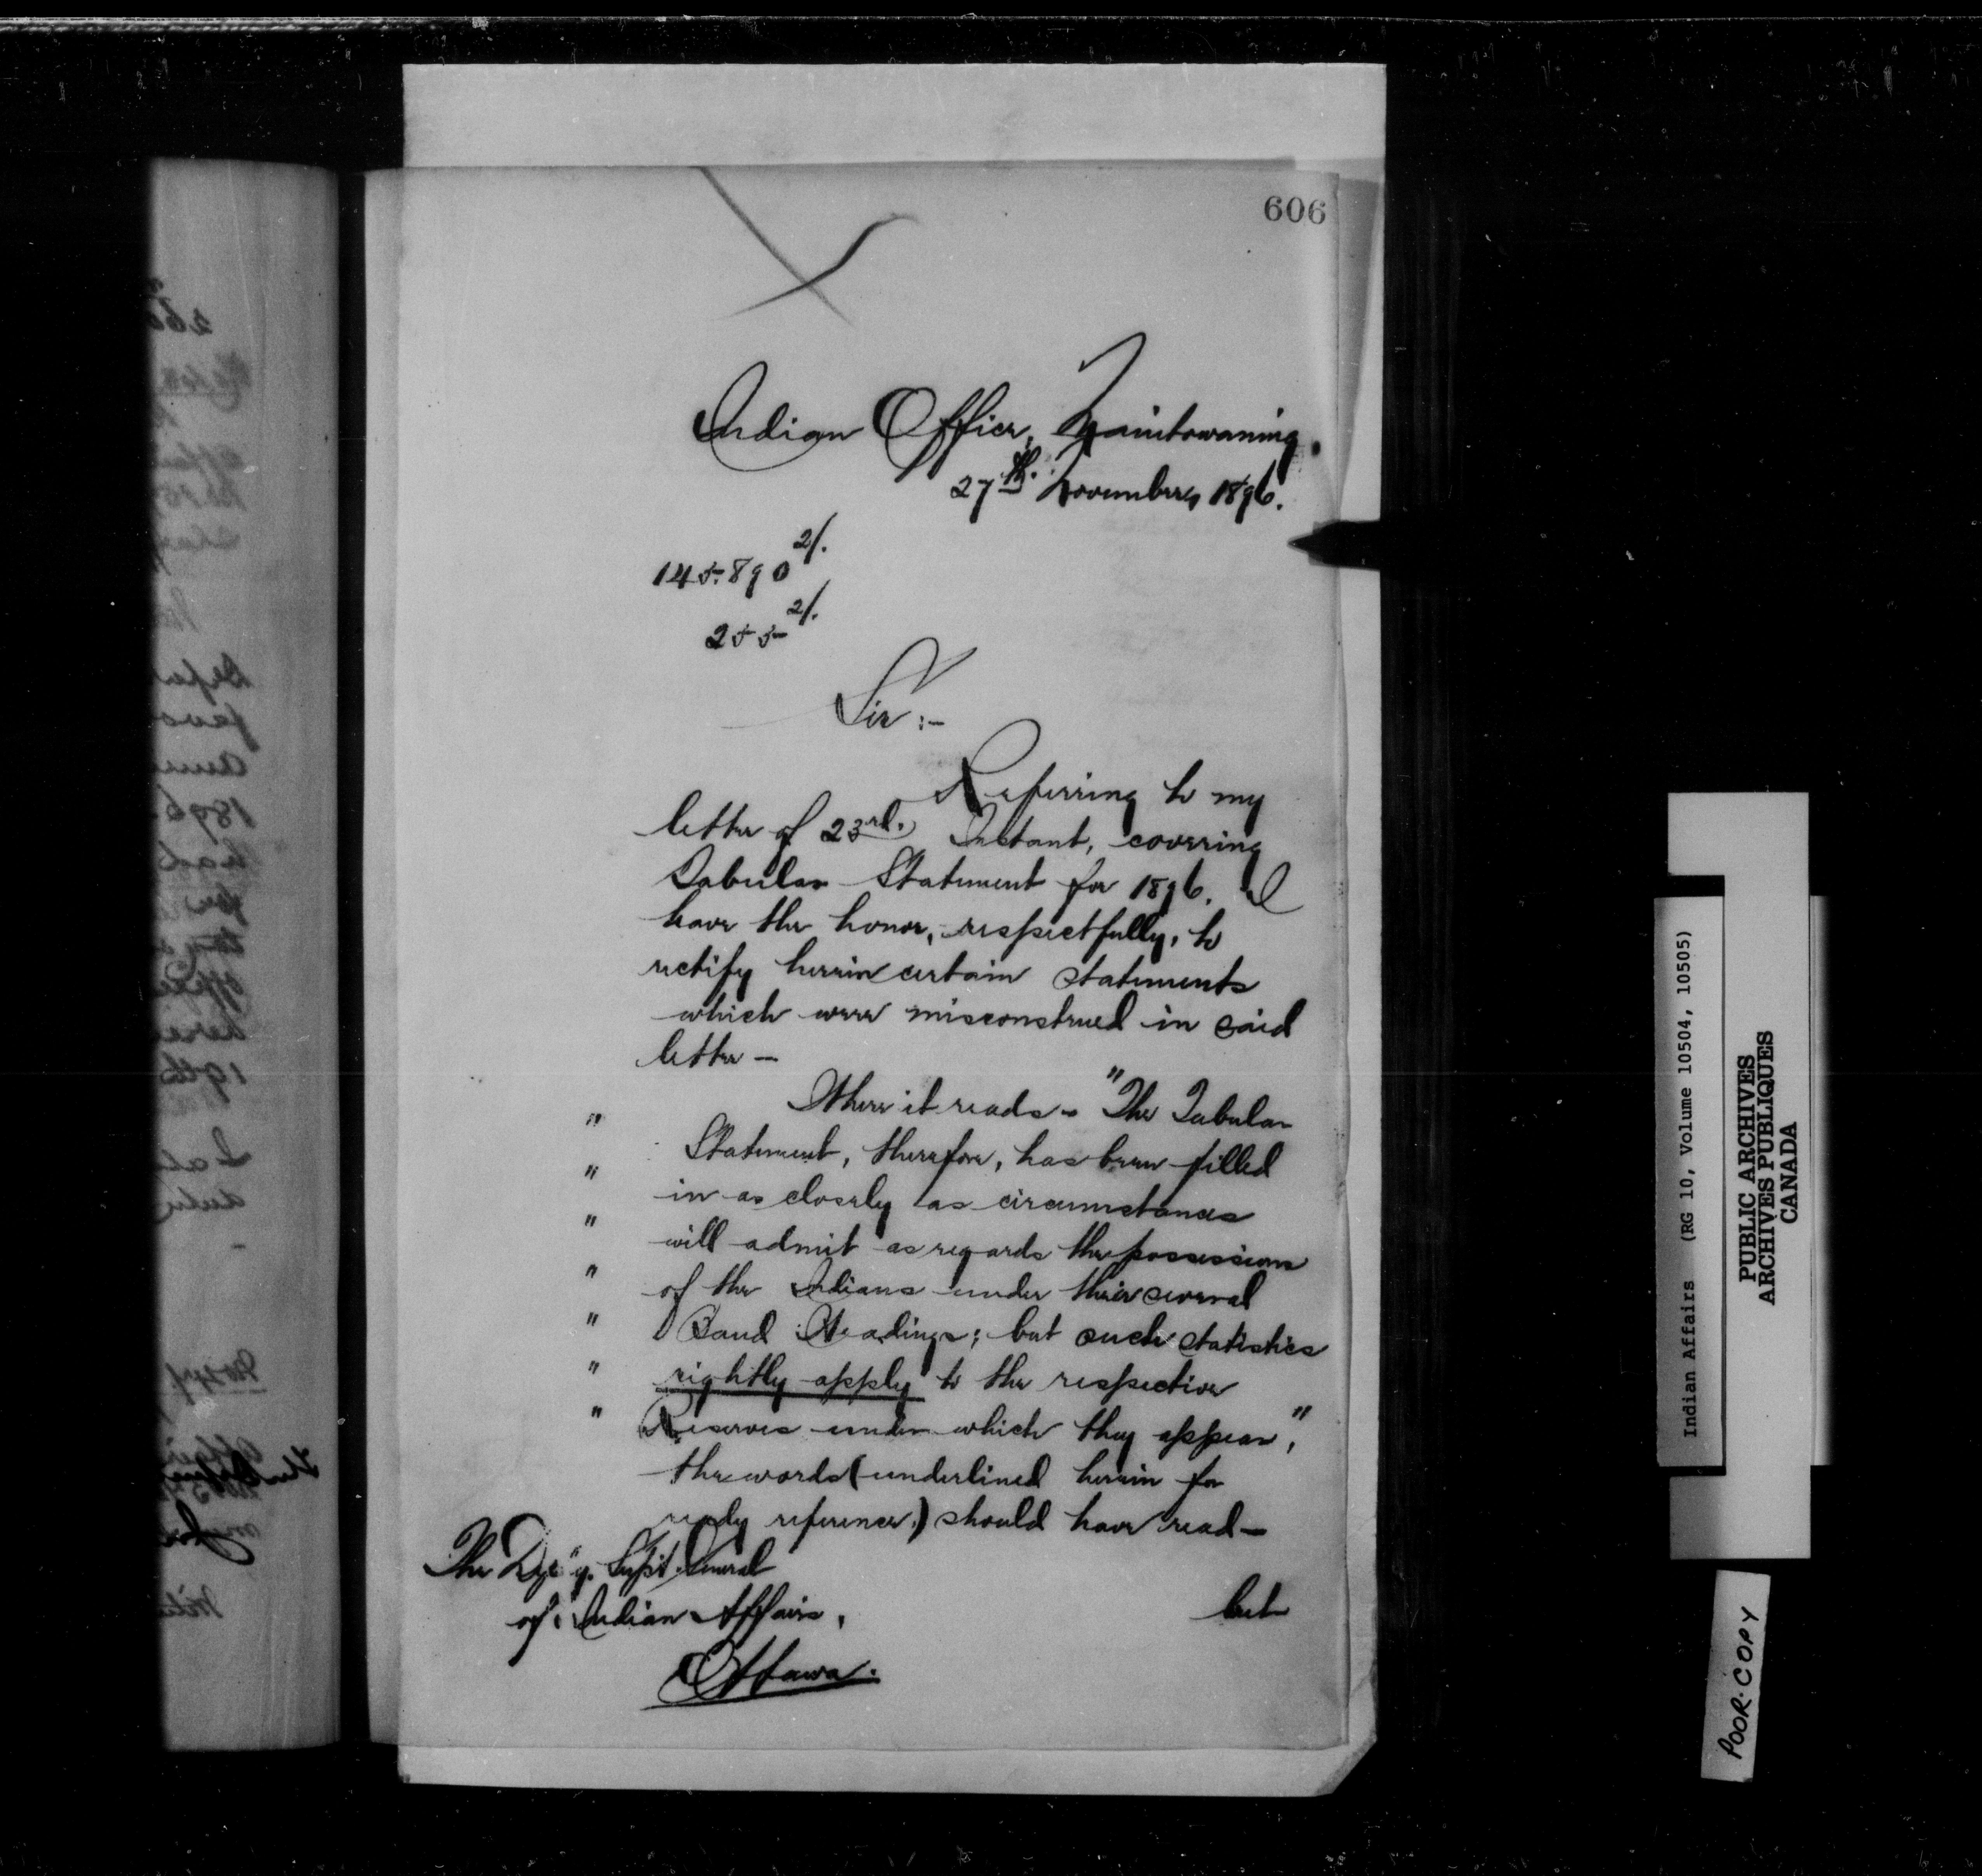 606
Indian Office, Manitowaning.
27th. November, 1896.
145.890 2/.
255 2/.
Sir :-
Referring to my
letter of 23rd. Instant, covering
Tabular Statement for 1896. I
have the honor, respectfully, to
rectify herein certain statements
which were misconstrued in said
letter -
Where it reads - "The Tabular
" Statement, therefore, has been filled
" in as closely as circumstances
" will admit as regards the possessions
" of the Indians under their several
" Band Headings; but such statistics
" rightly apply to the respective
" Reserves under which they appear,"
the words (underlined herein for
ready reference,) should have read -
but
The Dep'y. Supt. General
of Indian Affairs,
Ottawa.
Indian Affairs (RG 10, Volume 10504, 10505)
PUBLIC ARCHIVES
ARCHIVES PUBLIQUES
CANADA
POOR COPY